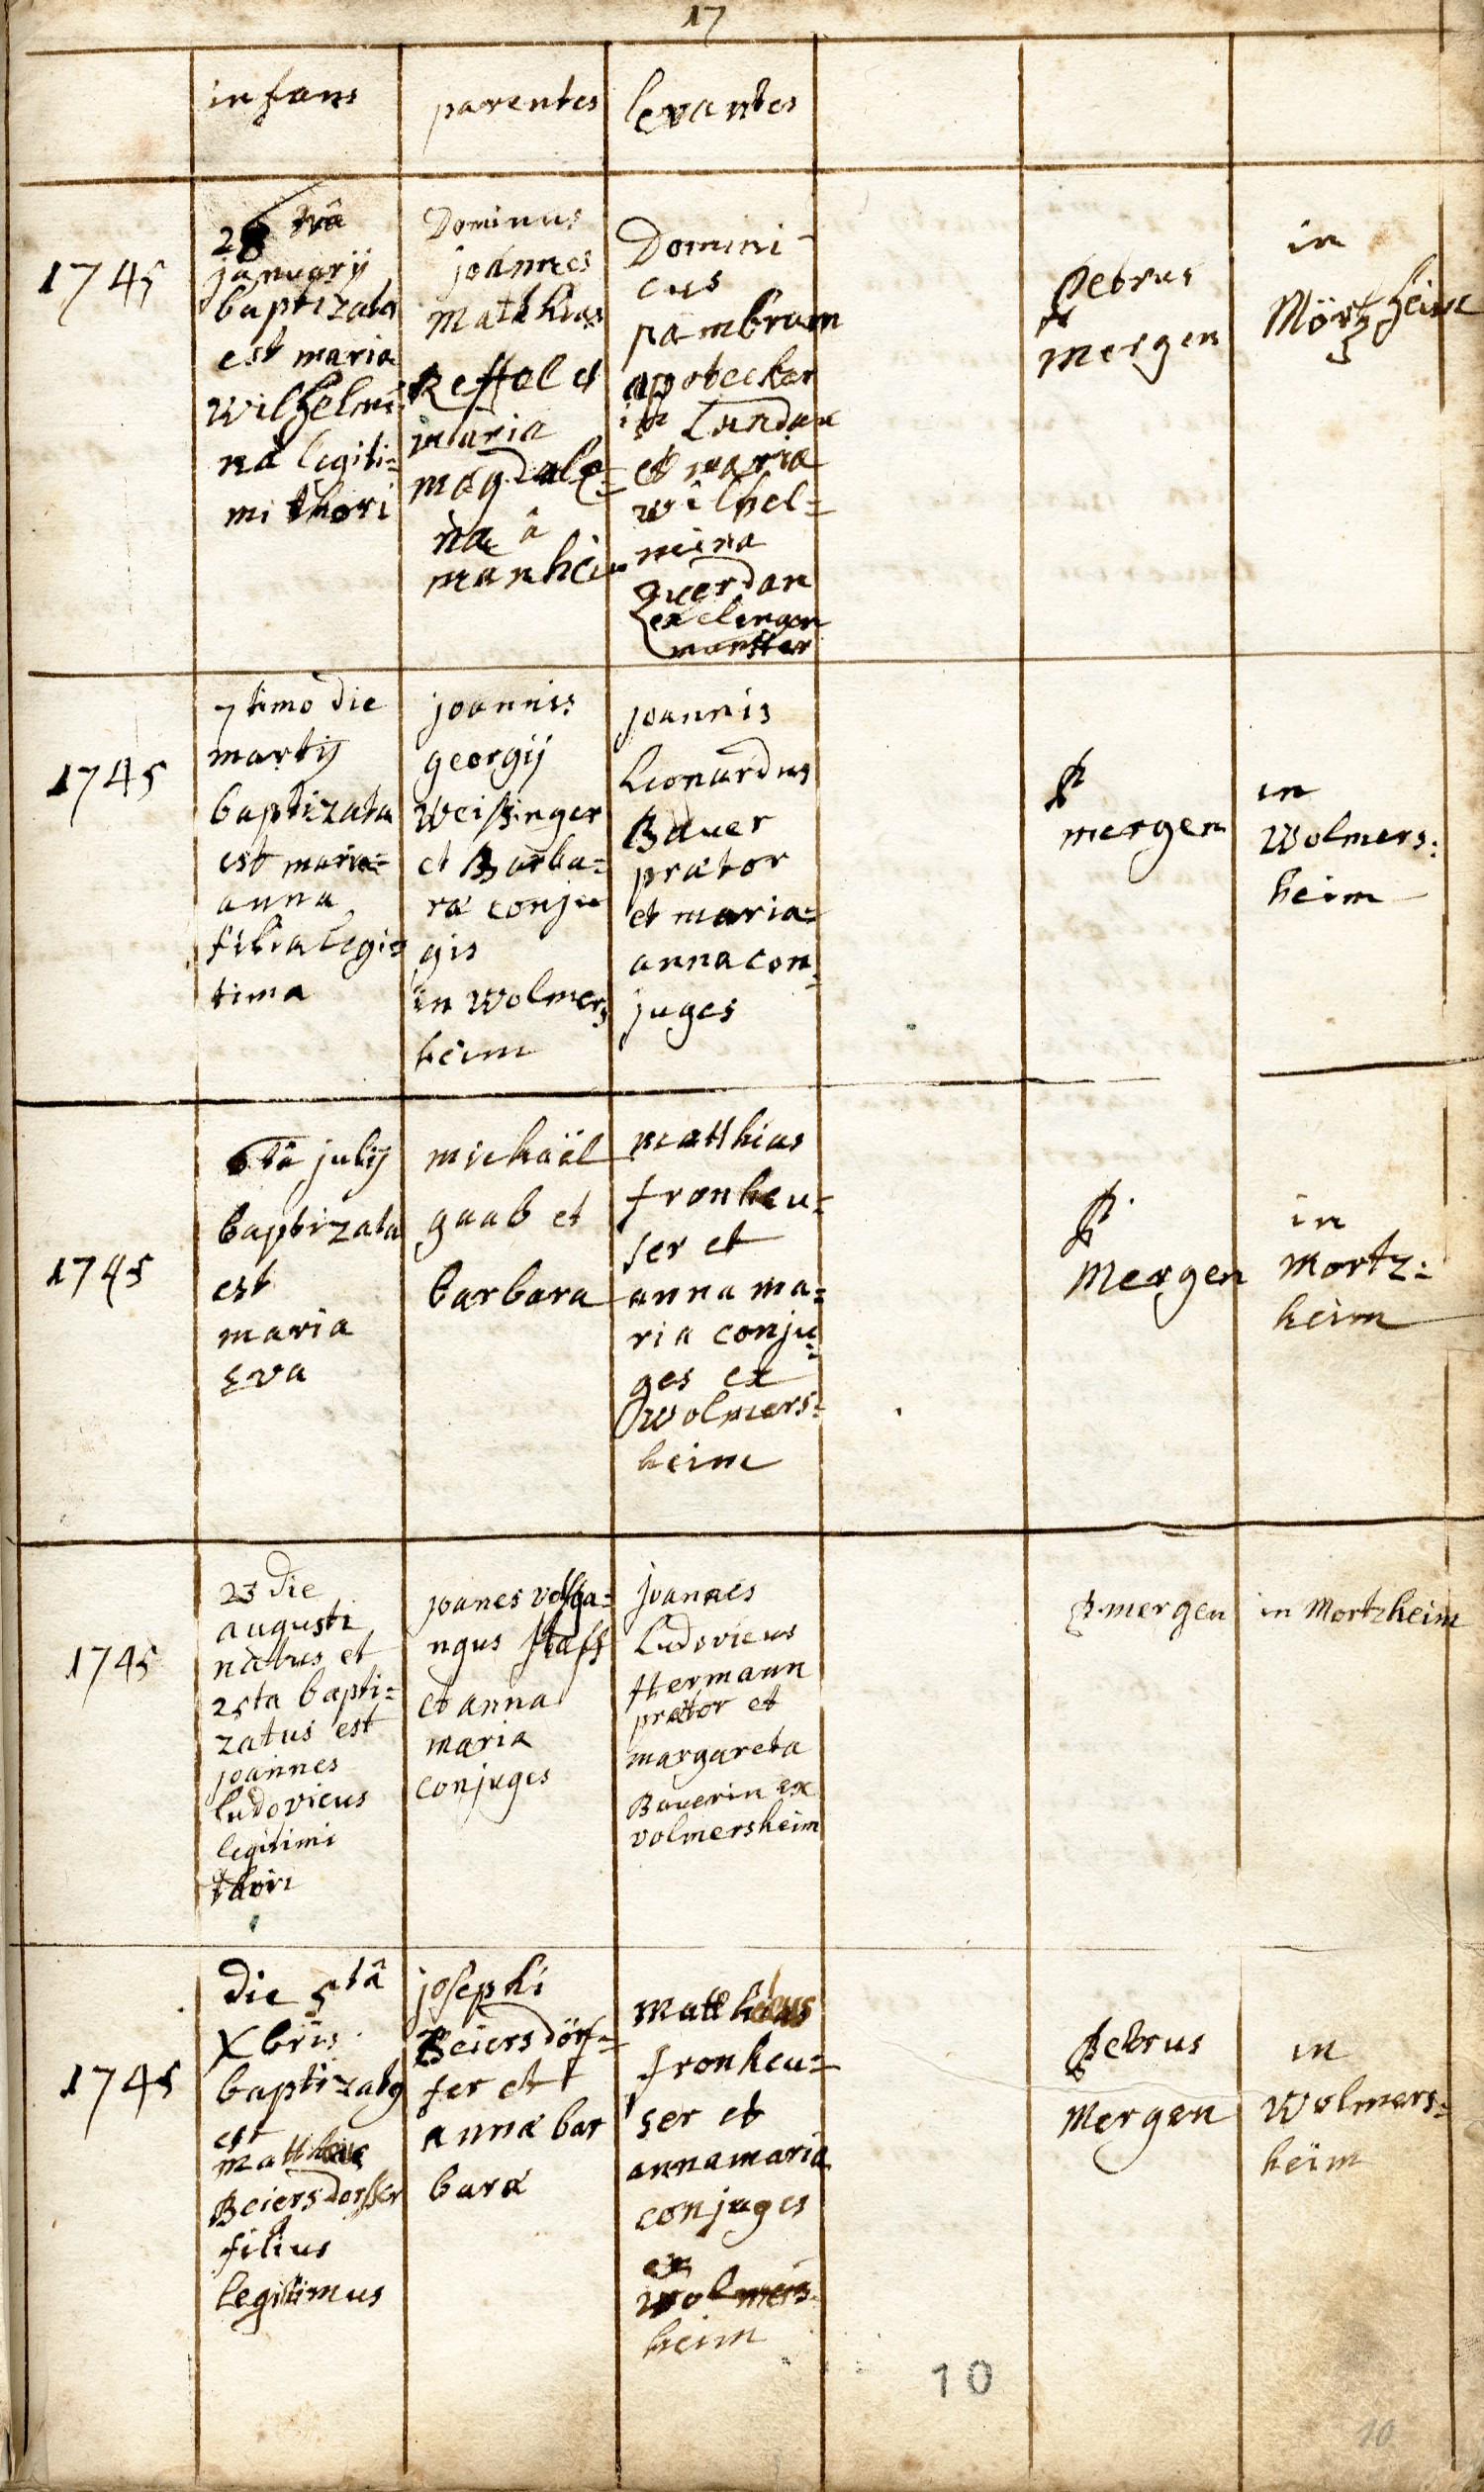 17
infans
parentes
levantes
1745
28 tvâ
januarÿ
baptizata
est maria
wilhelmi
na legiti=
mi thori
Dominus
joannes
matthias
Reffel et
maria
magdale=
na â
manheim
Domini-
cus
pambram
apotecker
in Landau
et maria
wilhel=
mina
querdan
ex clingen
munster
Petrus
mergen
in
Mörtzheim
1745
7timo die
martÿ
baptizata
est maria=
anna
filia legi=
tima
joannis
georgÿ
Weissinger
et Barba=
ræ conju
gis
in Wolmers
heim
joannis
Leonardus
Bauer
prætor
et maria=
anna con=
juges
P
mergen
in
Wolmers:
heim
1745
6tâ julÿ
baptizata
est
maria
Eva
michaël
gaab et
barbara
matthias
fronheu=
ser et
anna ma=
ria conju=
ges ex
Wolmers=
heim
P.
Mergen
in
mortz=
heim
1745
23 die
augusti
natus et
25ta bapti=
zatus est
joannes
ludovicus
legitimi
thori
joanes volfga=
ngus
et anna
maria
conjuges
joannes
Ludovicus
Hermann
prætor et
margareta
Bauerin ex
volmersheim
P. mergen
in Mortzheim
1745
Die 5tâ
Xbris
baptizatg
est
mattheus
Beiersdorffer
filius
legitimus
josephi
Beiersdörf=
fer et
annæ bar
baræ
mattheus
fronheu=
ser et
annamaria
conjuges
ex
wolmers=
heim
Petrus
Mergen
in
Wolmers=
heim
10
10